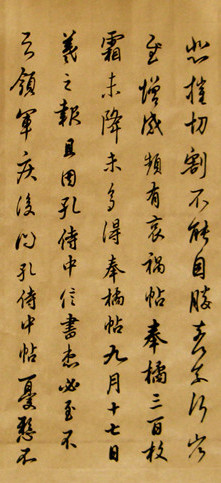 悲摧切割不能自勝奈何奈何省
慰增感頻有哀禍帖奉橘三百枚
霜未降未可多得奉橘帖九月十七日
羲之報且因孔侍中信書想必至不
知領軍疾後問孔侍中帖憂懸不